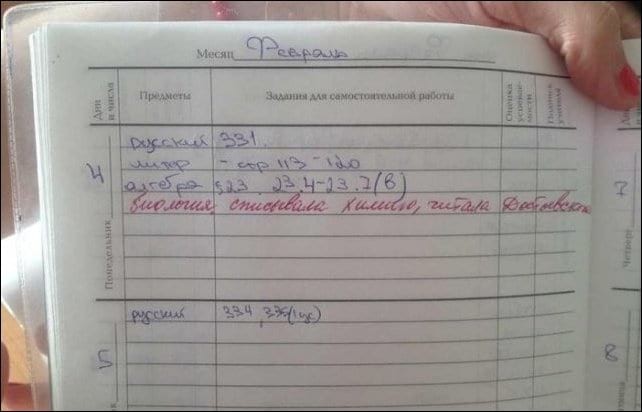 Месяц Февраль
Дни и числа
Предметы
Задания для самостоятельной работы
Оценка успевае-мости
Подпись учителя
4
Понедельник
русский 331.
литер - стр 113 - 120
алгебра §23. 23.4-23.7(в)
биология, списывала химию, читала Достоевского
5
русский 334, 335(1ус)
7
Четверг
8